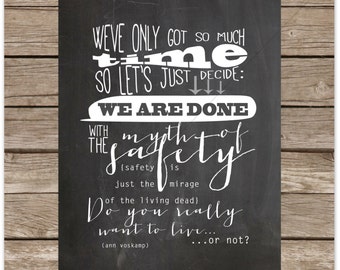 WE'VE ONLY GOT SO MUCH
time
SO LET'S JUST DECIDE:
WE ARE DONE
WITH THE myth of
safety
(safety is
just the mirage
of the living dead)
Do you really
want to live...
(ann voskamp)
...or not?